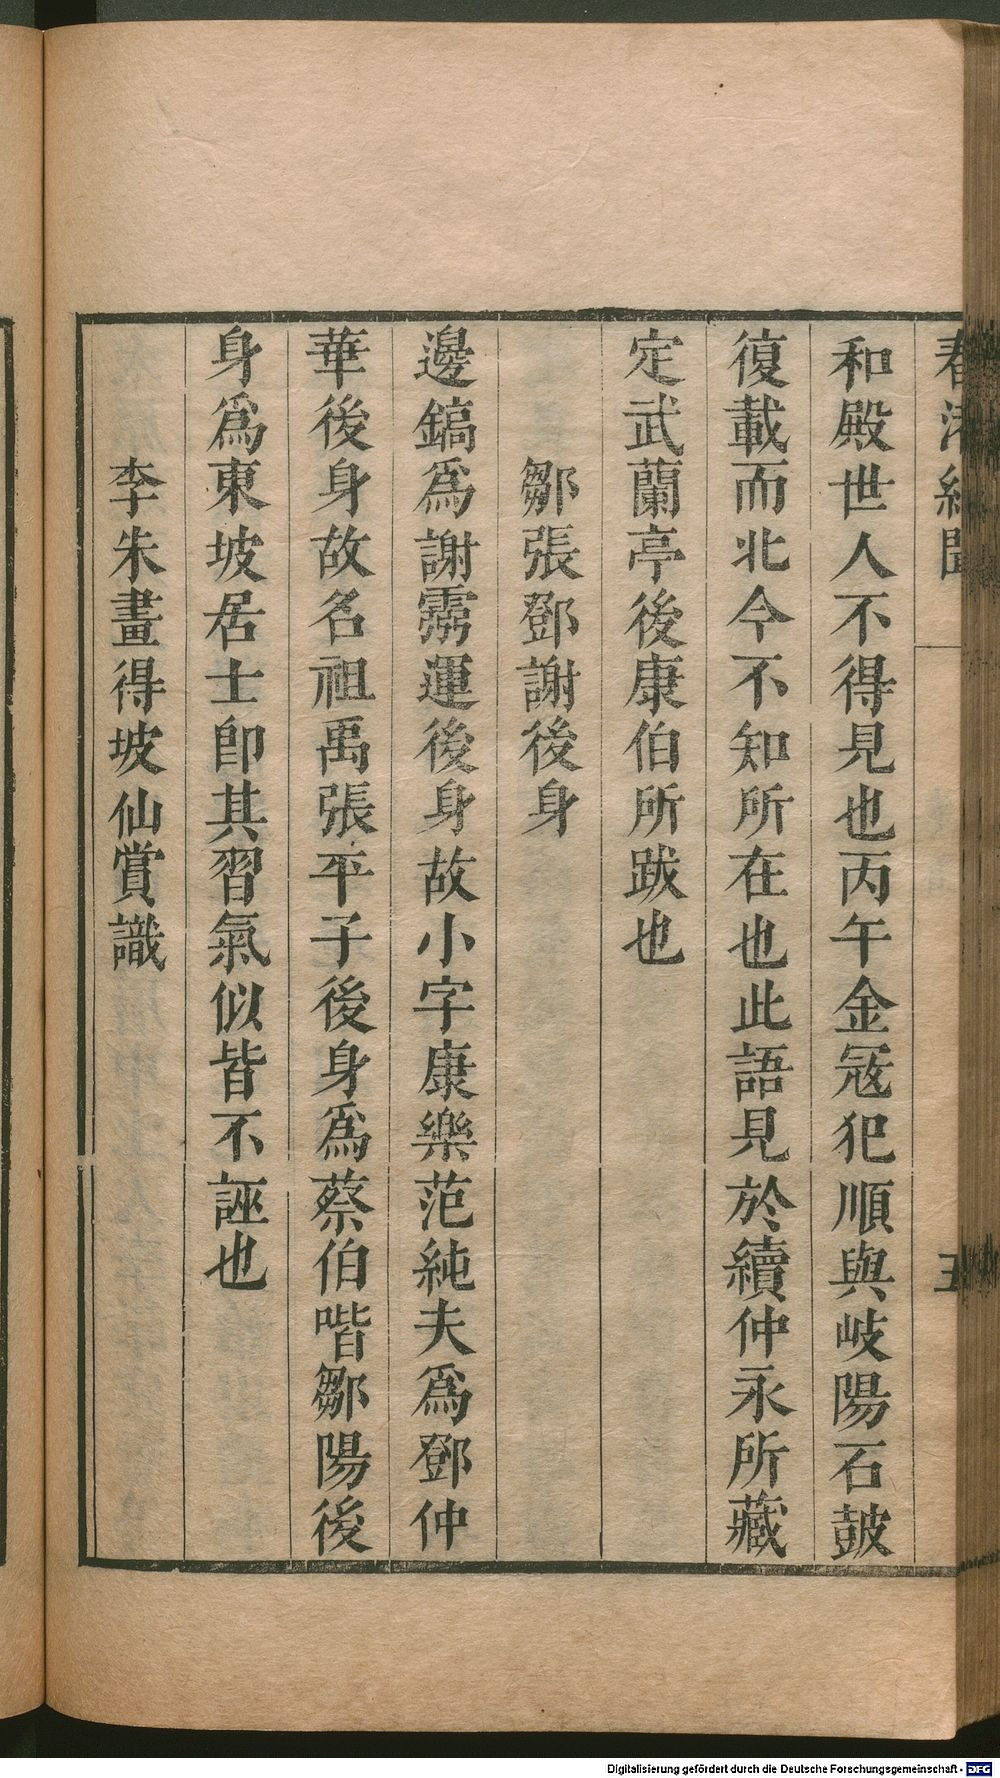 春渚紀聞
五
和殿世人不得見也丙午金冦犯順與岐陽石皷
復載而北今不知所在也此語見於續仲永所藏
定武蘭亭後康伯所跋也
鄒張鄧謝後身
邊鎬爲謝靈運後身故小字康樂范純夫爲鄧仲
華後身故名祖禹張平子後身爲蔡伯喈鄒陽後
身爲東坡居士卽其習氣似皆不誣也
李朱畫得坡仙賞識
Digitalisierung gefördert durch die Deutsche Forschungsgemeinschaft - DFG